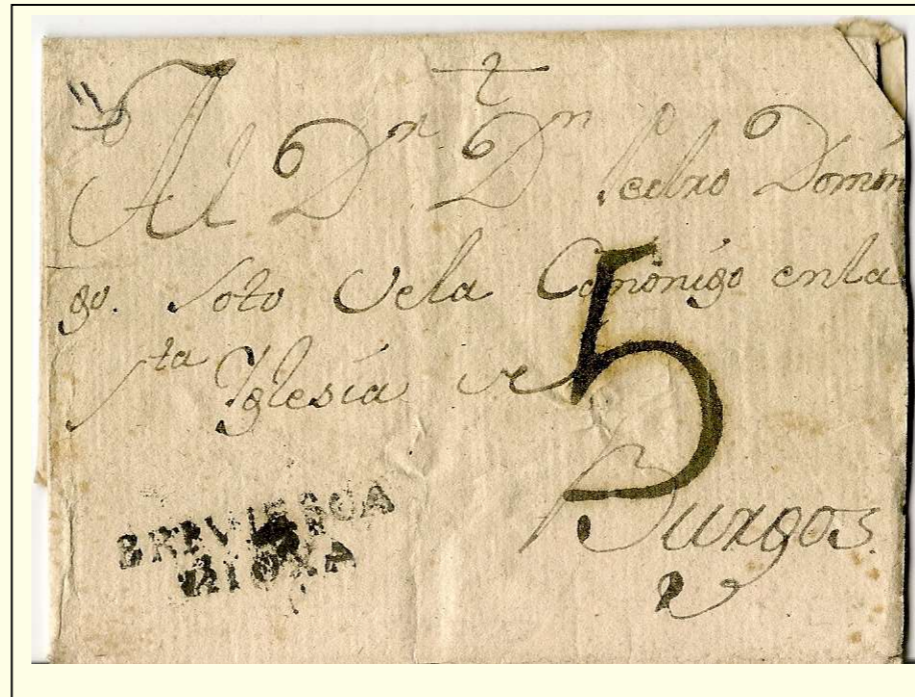 Al Dn Dn Pedro Domin
go. Soto Vela Canonigo en la
Sta Yglesia de
Burgos.
5
BRIVIESCA
RIOXA